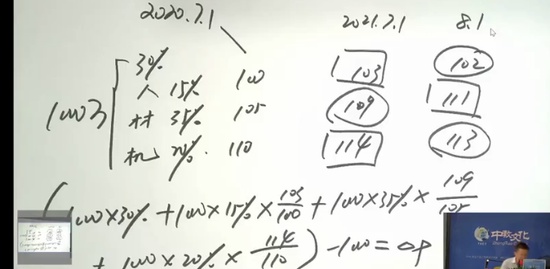 2020.7.1 2021.7.1 8.1
30%
人 15% 100 103 102
1000万 材 35% 105 109 111
机 20% 110 114 113
(1000×30% + 1000×15%×103/100 + 1000×35%×109/105
+ 1000×20%×114/110) - 1000 = ΔP